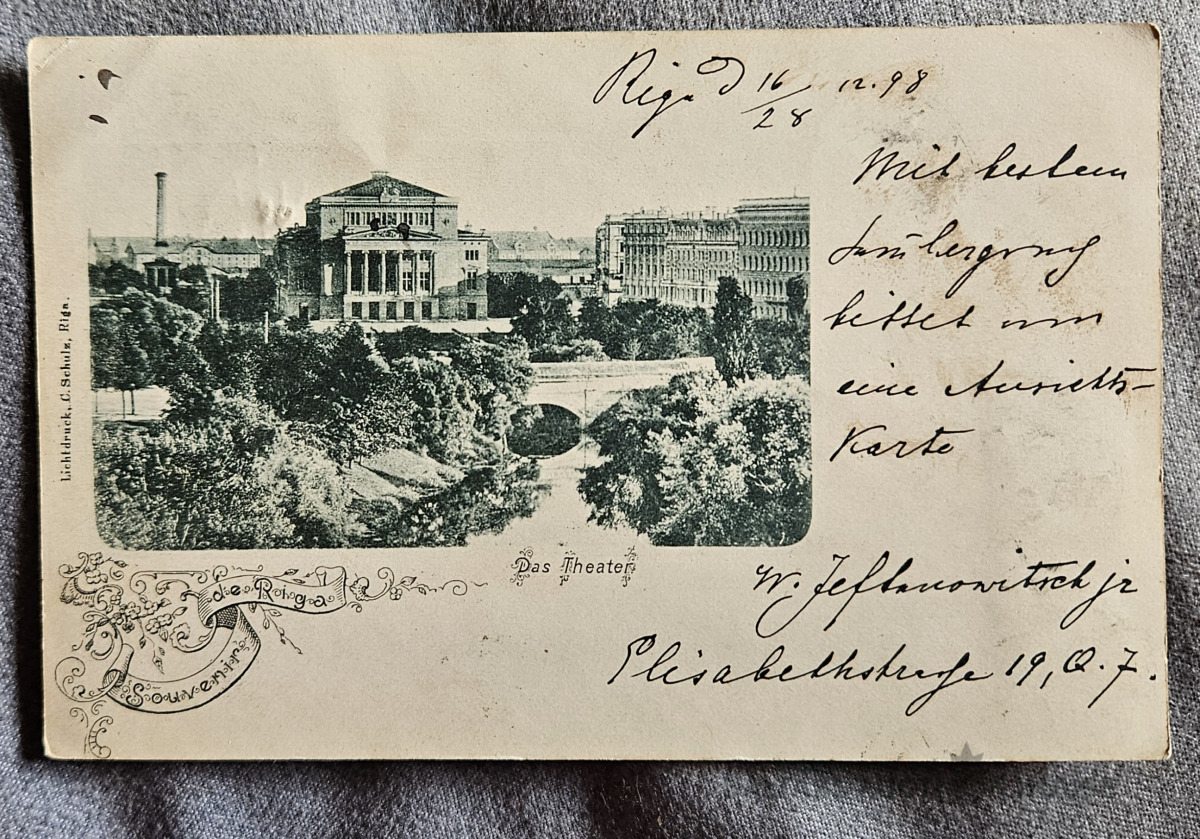 Riga d 16/28 12.98
Mit bestem
bittet um
eine Ansichts-
Karte
W. Jeftanowitsch jr
Elisabethstraße 19, Q. 7.
Das Theater.
Souvenir de Riga
Lichtdruck, C. Schulz, Riga.